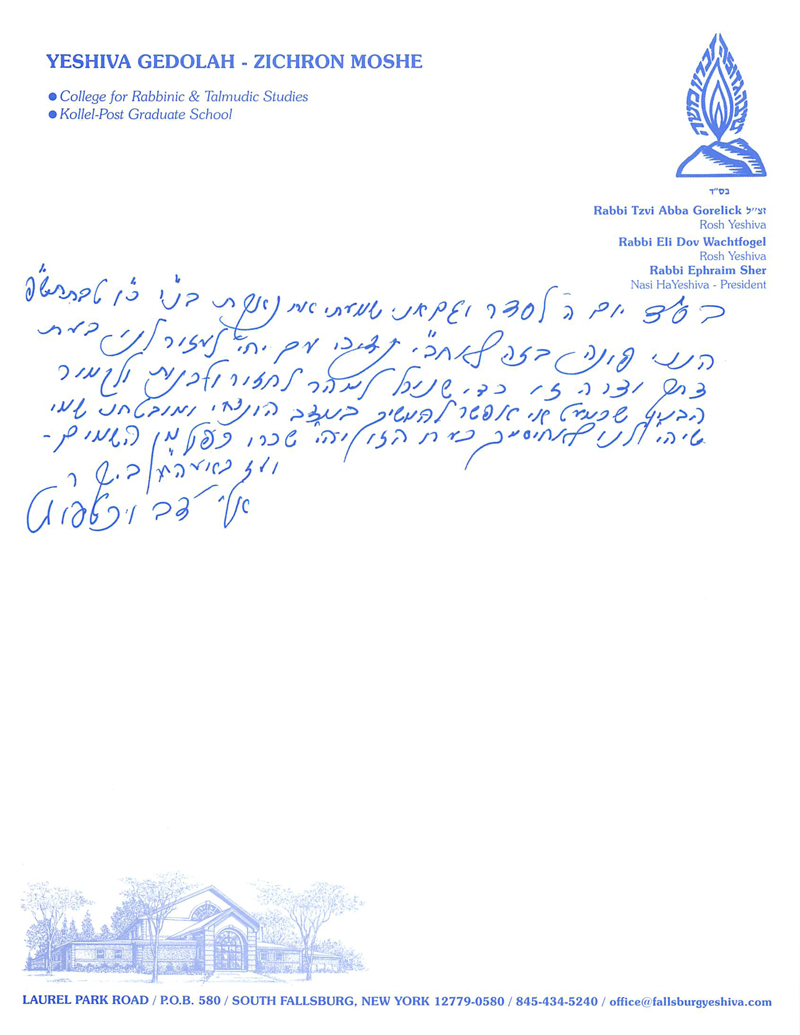 YESHIVA GEDOLAH - ZICHRON MOSHE
● College for Rabbinic & Talmudic Studies
● Kollel-Post Graduate School
בס"ד
Rabbi Tzvi Abba Gorelick זצ"ל
Rosh Yeshiva
Rabbi Eli Dov Wachtfogel
Rosh Yeshiva
Rabbi Ephraim Sher
Nasi HaYeshiva - President
בס"ד יום ה' לסדר וגם אני שמעתי את נאקת בנ"י
הנני פונה בזה לאחב"י נדיבי עם יחי' לעזור לנו בעת
צרה זו כדי שנוכל למהר לחזור ולבנות ולגמור
הבנין שכמעט אי אפשר להמשיך במצב הנוכחי ומובטחני שמי
שיהי' לנו בעת הזו יהי' שכרו כפול מן השמים -
אלי' דב וכטפוגל
LAUREL PARK ROAD / P.O.B. 580 / SOUTH FALLSBURG, NEW YORK 12779-0580 / 845-434-5240 / office@fallsburgyeshiva.com